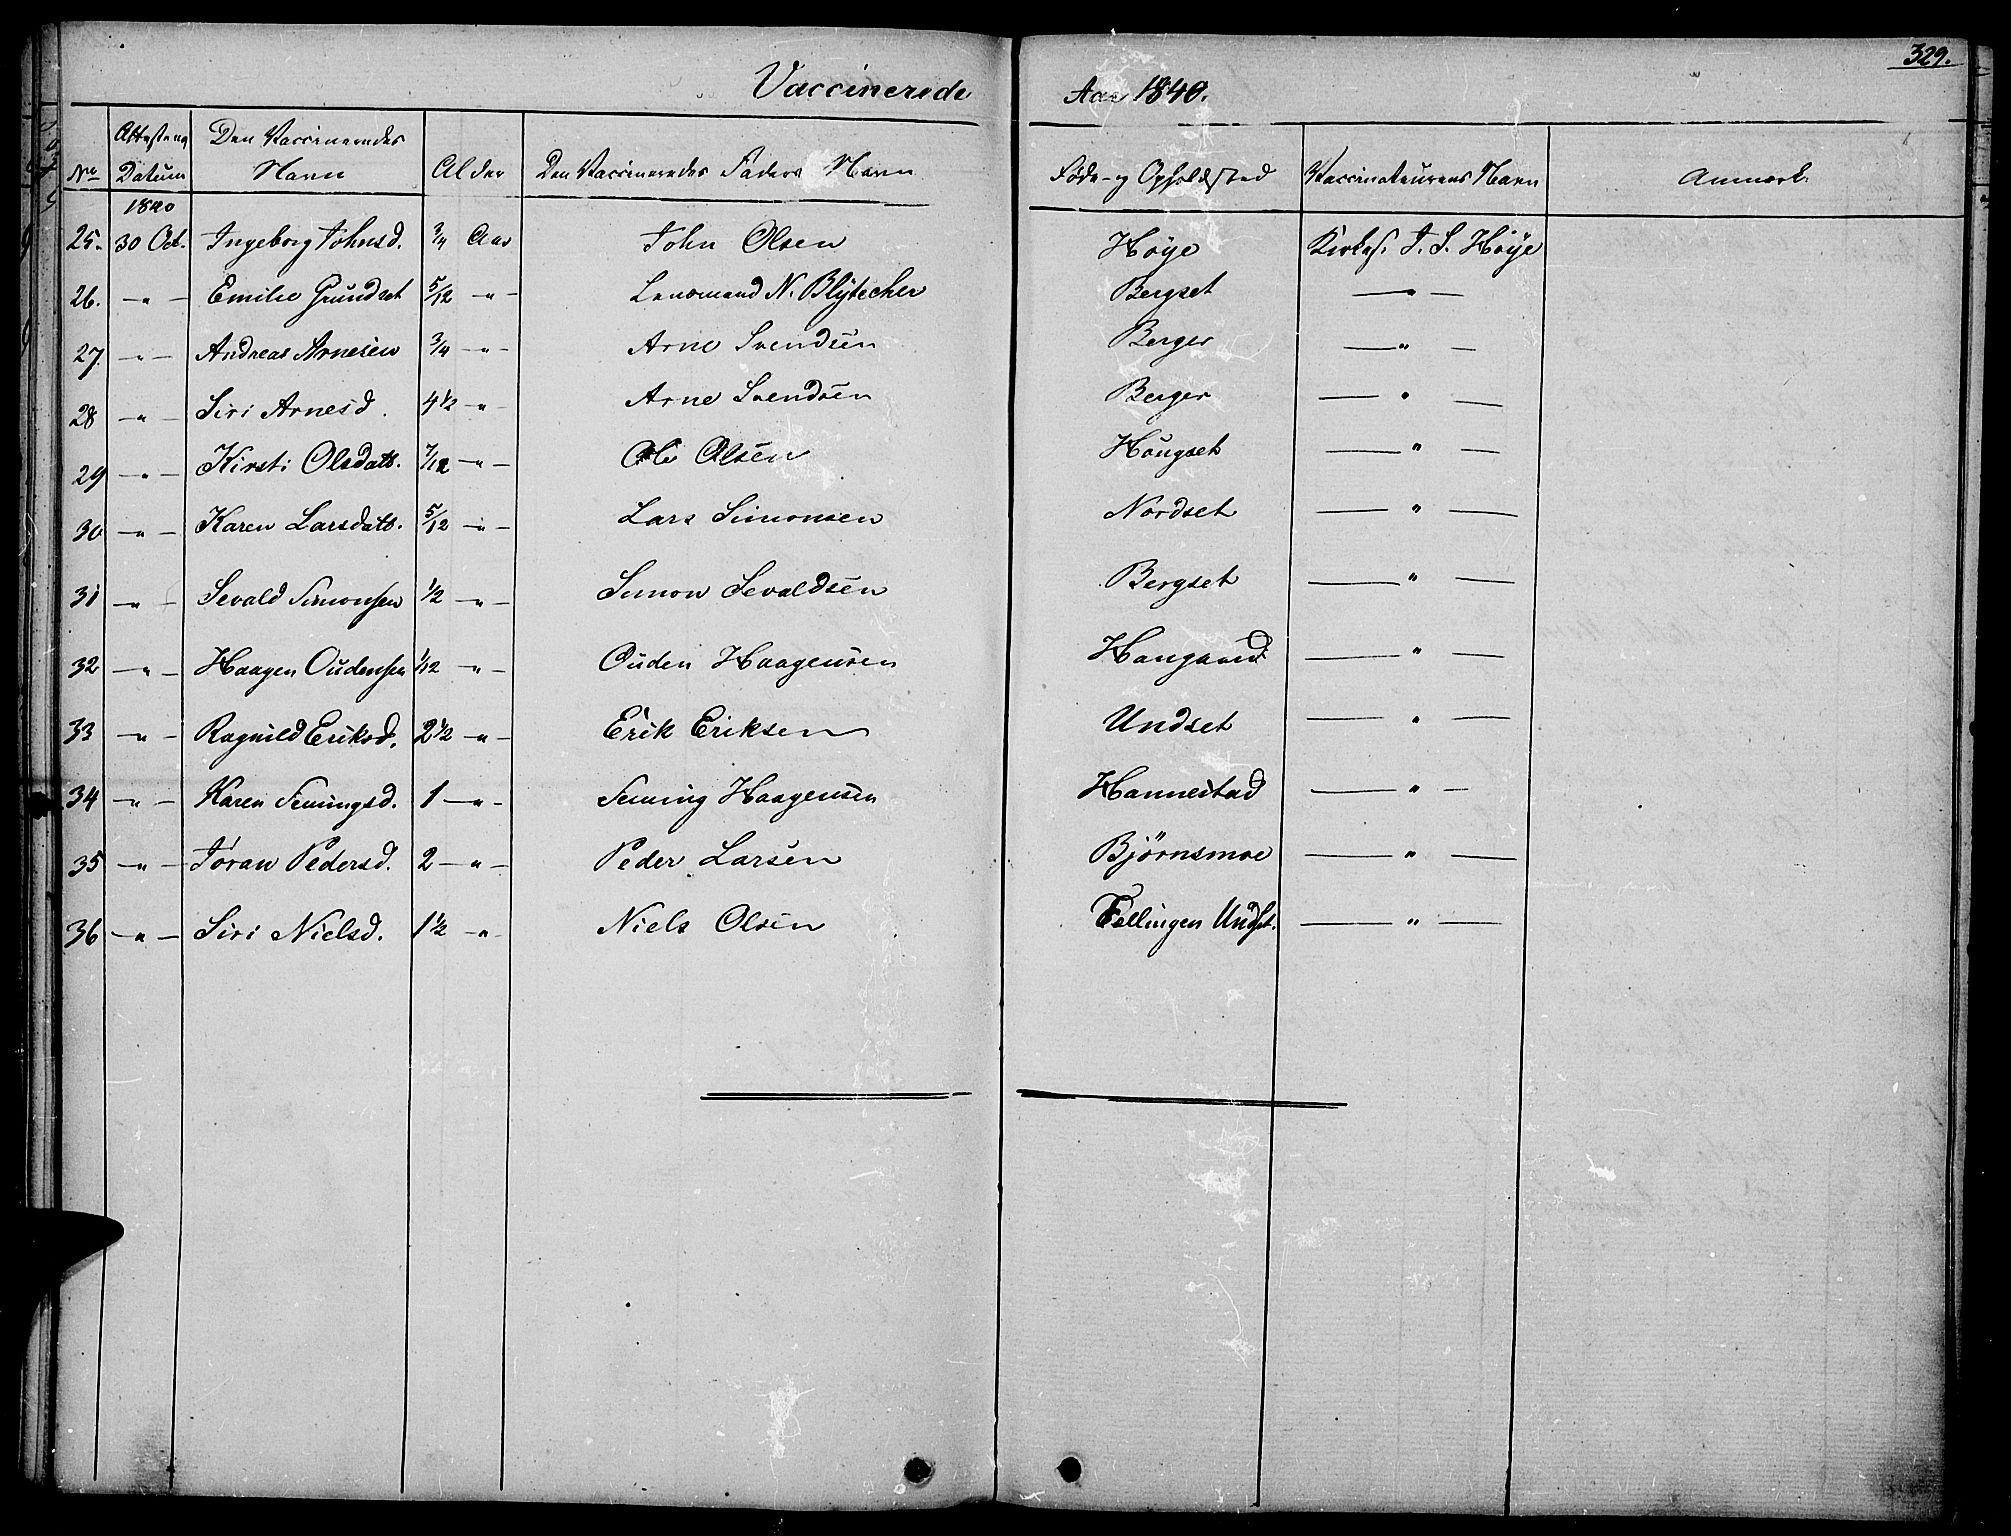 329.
Vaccinerede Aar 1840.
No Attestens Datum Den Vaccineredes Navn Alder Den Vaccineredes Faders Navn Føde- og Opholdsted Vaccinateurens Navn Anmærk.
1840
25. 30 Oct. Ingeborg Johnsd. 3/4 Aar John Olsen Høye Kirkes. J. S. Høye
26. —"— Emilie Grundset 5/12 —"— Lensmand N. Blytecher Bergset —"—
27. —"— Andreas Arnesen 3/4 —"— Arne Svendsen Berger —"—
28 —"— Siri Arnesd. 4 1/2 —"— Arne Svendsen Berger —"—
29 —"— Kirsti Olsdatt. 7/12 —"— Ole Olsen Hougset —"—
30 —"— Karen Larsdatt. 5/12 —"— Lars Simonsen Nordset —"—
31 —"— Sevald Simonsen 1/2 —"— Simon Sevaldsen Bergset —"—
32 —"— Haagen Oudensen 1/12 —"— Ouden Haagensen Haugaard —"—
33 —"— Ragnild Eriksd. 2 1/2 —"— Erik Eriksen Undset —"—
34 —"— Karen Semingsd. 1 —"— Seming Haagensen Hannestad —"—
35 —"— Joran Pedersd. 2 —"— Peder Larsen Bjørnsmoe —"—
36 —"— Siri Nielsd. 1 1/2 —"— Niels Olsen Fellingen Undset. —"—